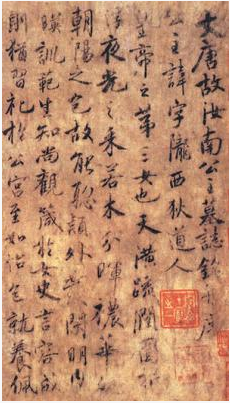 大唐故汝南公主墓誌銘并序
公主諱字隴西狄道人
皇帝之第三女也天潢疏潤圓折
浮夜光之采若木分暉穠華照
朝陽之色故能聰穎外發閑明內
暎訓範生知尚觀箴於女史言容成
則猶習礼於公宮至如怡色就養佩